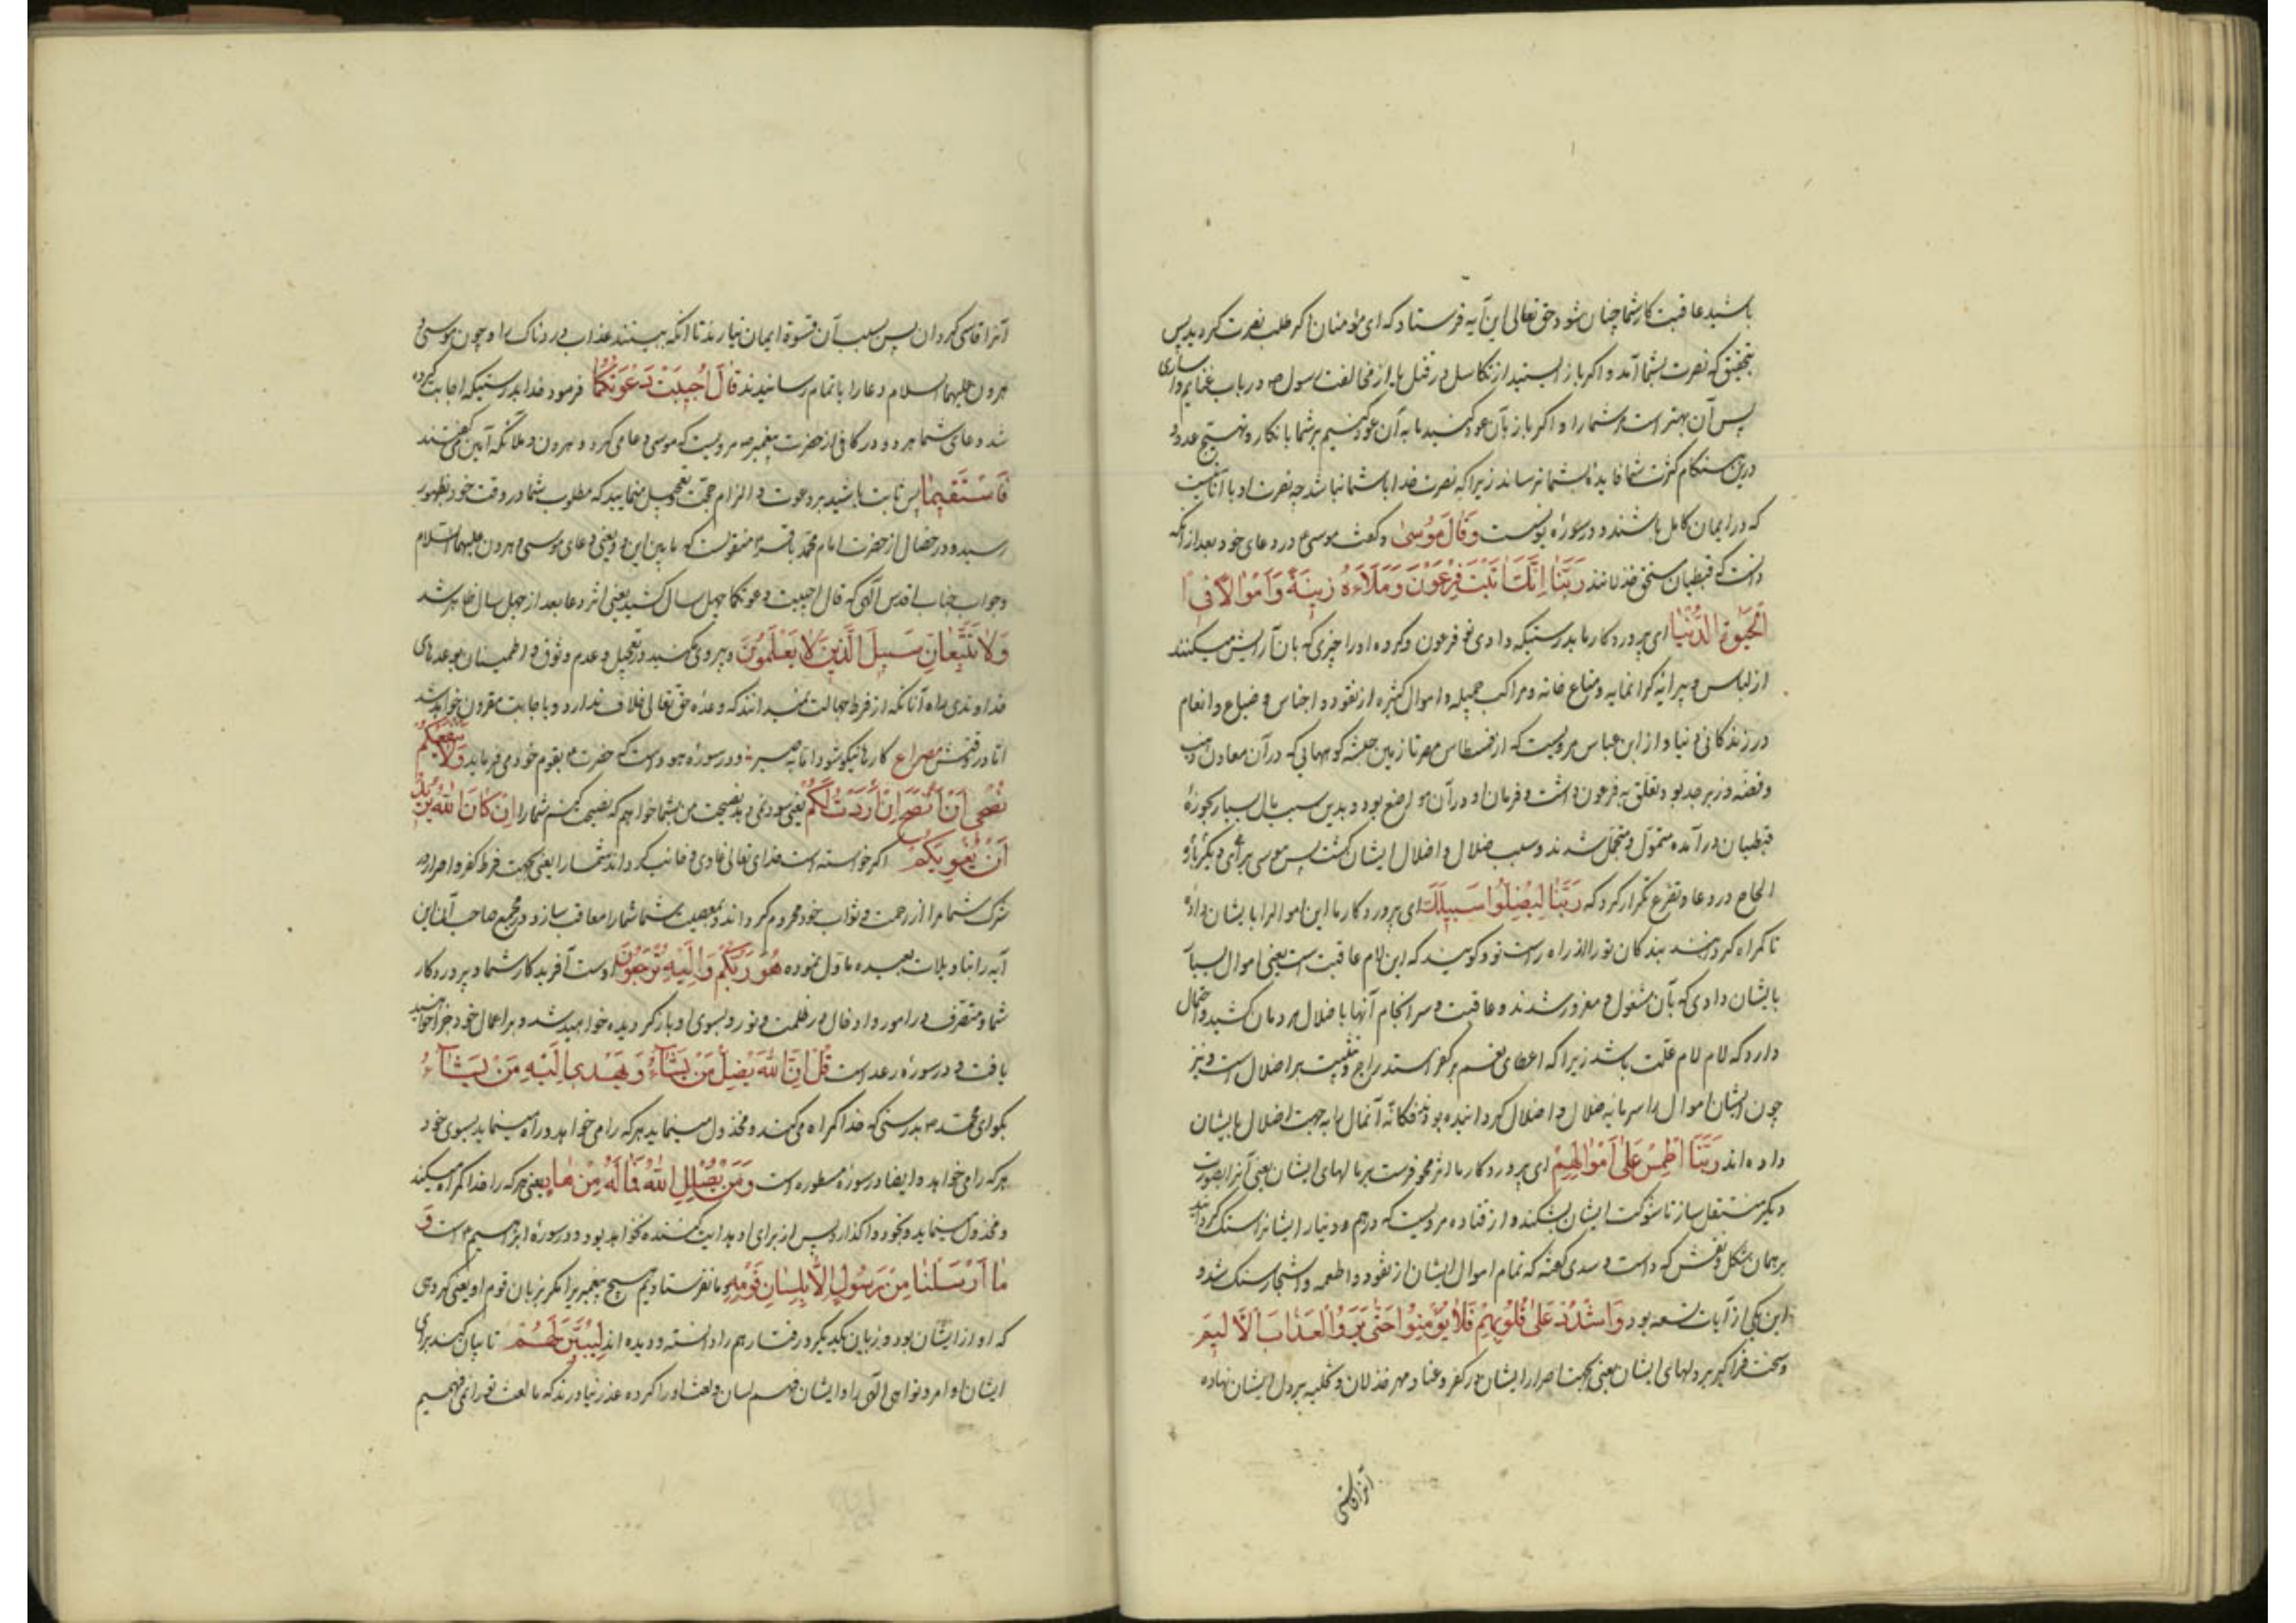 باشید عاقبت کار شما چنان شود حق تعالی این آیه فرستاد که ای مؤمنان اگر طلب نصرت کردید پس
بتحقیق که نصرت بشما آمد و اگر باز ایستید از تکاسل در قتل یا از مخالفت رسول ص در باب غنایم و
پس آن بهتر است شما را و اگر باز بآن عود کنید ما به آن عود کنیم بر شما بانکار و تهییج عدو و
درین هنگام کثرت شما فایده بشما نرساند زیرا که نصرت خدا با شما نباشد چه نصرت او با آنانست
که در ایمان کامل باشند و در سوره یونس است وَقَالَ مُوسىٰ و گفت موسی ع در دعای خود بعد از آنکه
دانست که قبطیان مستحق خذلانند رَبَّنَا اِنَّكَ اٰتَيْتَ فِرْعَوْنَ وَمَلَاَهُ زِينَةً وَاَمْوٰالاً فِى
الْحَيٰوةِ الدُّنْيٰا ای پروردگار ما بدرستیکه دادی تو فرعون و گروه او را چیزی که بان آرایش میکنند
از لباس و پیرایه گرانمایه و متاع خانه و مراکب جمیله و اموال کثیره از نقود و اجناس و ضیاع و انعام
در زندگانی دنیا و از ابن عباس مرویست که از فسطاس مصر تا زمین حبشه کوههایی که در آن معادن ذهب
و فضه و زبرجد بود تعلق به فرعون داشت و فرمان او در آن مواضع بود و بدین سبب مال بسیار بحوزهٔ
قبطیان در آمده متمول و متجمل شدند و سبب ضلال و اضلال ایشان گشت پس موسی برای دیگر بار و
الحاح در دعا و تضرع تکرار کرد که رَبَّنٰا لِيُضِلُّوا سَبيلِكَ ای پروردگار ما این اموال را بایشان داده
تا گمراه گردانند بندگان تو را از راه راست تو و گویند که این لام عاقبت است یعنی اموال بسیار
بایشان دادی که بآن مشغول و مغرور شدند و عاقبت و سرانجام آنها باضلال مردمان کشید و احتمال
دارد که لام لام علت باشد زیرا که اعطای نعم بر کفر استدراج و تثبیت بر اضلال است و نیز
چون ایشان اموال را سرمایه ضلال و اضلال گردانیده بودند فکانّه آنمال را به جهت اضلال بایشان
داده‌اند رَبَّنَا اطْمِسْ عَلىٰ اَمْوٰالِهِمْ ای پروردگار ما اثر محو فرست بر مالهای ایشان یعنی آنرا بصورت
دیگر منتقل ساز تا شوکت ایشان بشکند و از قتاده مرویست که درهم و دینار ایشانرا سنگ گردانید
بر همان شکل و نقش که داشت و سدی گفته که تمام اموال ایشان از نقود و اطعمه و اشجار سنگ شد و
این یکی از آیات تسعه بود وَاشْدُدْ عَلىٰ قُلُوبِهِمْ فَلاٰ يُؤْمِنُوا حَتّٰى يَرَوُا الْعَذٰابَ الْاَليمَ
و سخت فراگیر بر دلهای ایشان یعنی بجهت اصرار ایشان در کفر و عناد مهر خذلان و تخلیه بر دل ایشان نهاده
آنرا قاسی
آنرا قاسی گردان پس بسبب آن قسوة ایمان نیارند تا آنکه ببینند عذاب دردناک را و چون موسی و
هرون علیهما السلام دعا را باتمام رسانیدند قٰالَ اُجيبَتْ دَعْوَتُكُمٰا فرمود خدا بدرستیکه اجابت کرده
شد دعای شما هر دو و در کافی از حضرت پیغمبر ص مرویست که موسی دعا می کرد و هرون و ملائکه آمین می گفتند
فَاسْتَقيمٰا پس ثابت باشید بر دعوت و الزام حجت و تعجیل منمایید که مطلوب شما در وقت خود بظهور
رسید و در خصال از حضرت امام محمد باقر ع منقولست که ما بین این دو یعنی دعای موسی و هرون علیهما السلام
و جواب جناب اقدس الٓهی که قال اجیبت دعوتکما چهل سال کشید یعنی اثر دعا بعد از چهل سال ظاهر شد
وَلاٰ تَتَّبِعٰانِّ سَبيلَ الَّذينَ لاٰ يَعْلَمُونَ و پیروی مکنید در تعجیل و عدم وثوق و اطمینان بوعدهای
خداوندی راه آنانکه از فرط جهالت نمیدانند که وعدهٔ حق تعالی خلاف ندارد و باجابت مقرون خواهد شد
اما در وقتش مصراع کارها نیکو شود اما به صبر و در سورهٔ هود است که حضرت بقوم خود می فرماید وَلاٰ يَنْفَعُكُمْ
نُصْحى اِنْ اَرَدْتُ اَنْ اَنْصَحَ لَكُمْ یعنی سود نمی دهد نصیحت من بشما خواهم که نصیحت کنم شما را اِنْ كٰانَ اللّٰهُ يُريدُ
اَنْ يُغْوِيَكُمْ اگر خواسته است خدای تعالی غاوی و خائب گرداند شما را یعنی بجهت فرط کفر و اصرار در
شرک شما را از رحمت و ثواب خود محروم گرداند و بمعصیت شما شما را معاقب سازد و در مجمع صاحب آن این
آیه را بتاویلات بعیده ماول نموده هُوَ رَبُّكُمْ وَاِلَيْهِ تُرْجَعُونَ اوست آفریدگار شما و پروردگار
شما و متصرف در امور و بسوی او بازگردیده خواهید شد و بر اعمال خود جزا خواهید
یافت و در سورهٔ رعد است قُلْ اِنَّ اللّٰهَ يُضِلُّ مَنْ يَشٰآءُ وَيَهْدى اِلَيْهِ مَنْ يَشٰآءُ
بگو ای محمد ص بدرستی که خدا گمراه می کند و مخذول مینماید هر که را می خواهد و راه مینماید بسوی خود
هر که را می خواهد و ایضا در سورهٔ مسطوره است وَمَنْ يُضْلِلِ اللّٰهُ فَمٰا لَهُ مِنْ هٰادٍ یعنی هر که را خدا گمراه میکند
و مخذول مینماید و بخود واگذارد پس از برای او هدایت کننده نخواهد بود و در سورهٔ ابراهیم ع است وَ
مٰا اَرْسَلْنٰا مِنْ رَسُولٍ اِلاّٰ بِلِسٰانِ قَوْمِهِ و ما نفرستادیم هیچ پیغمبر را مگر بزبان قوم او یعنی گروهی
که او از ایشان بود و زبان یکدیگر و رفتار هم را دانسته و دیده اند لِيُبَيِّنَ لَهُمْ تا بیان کند برای
ایشان اوامر و نواهی الٓهی را و ایشان فهم لسان و لغت او را کرده عذر نیاورند که ما لغت تو را نمی فهمیم